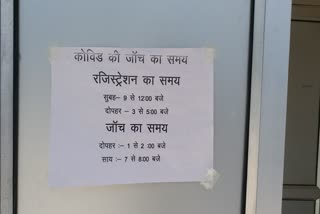 कोविड की जाँच का समय
रजिस्ट्रेशन का समय
सुबह:- 9 से 12:00 बजे
दोपहर :- 3 से 5:00 बजे
जाँच का समय
दोपहर :- 1 से 2 :00 बजे
सायं :- 7 से 8:00 बजे